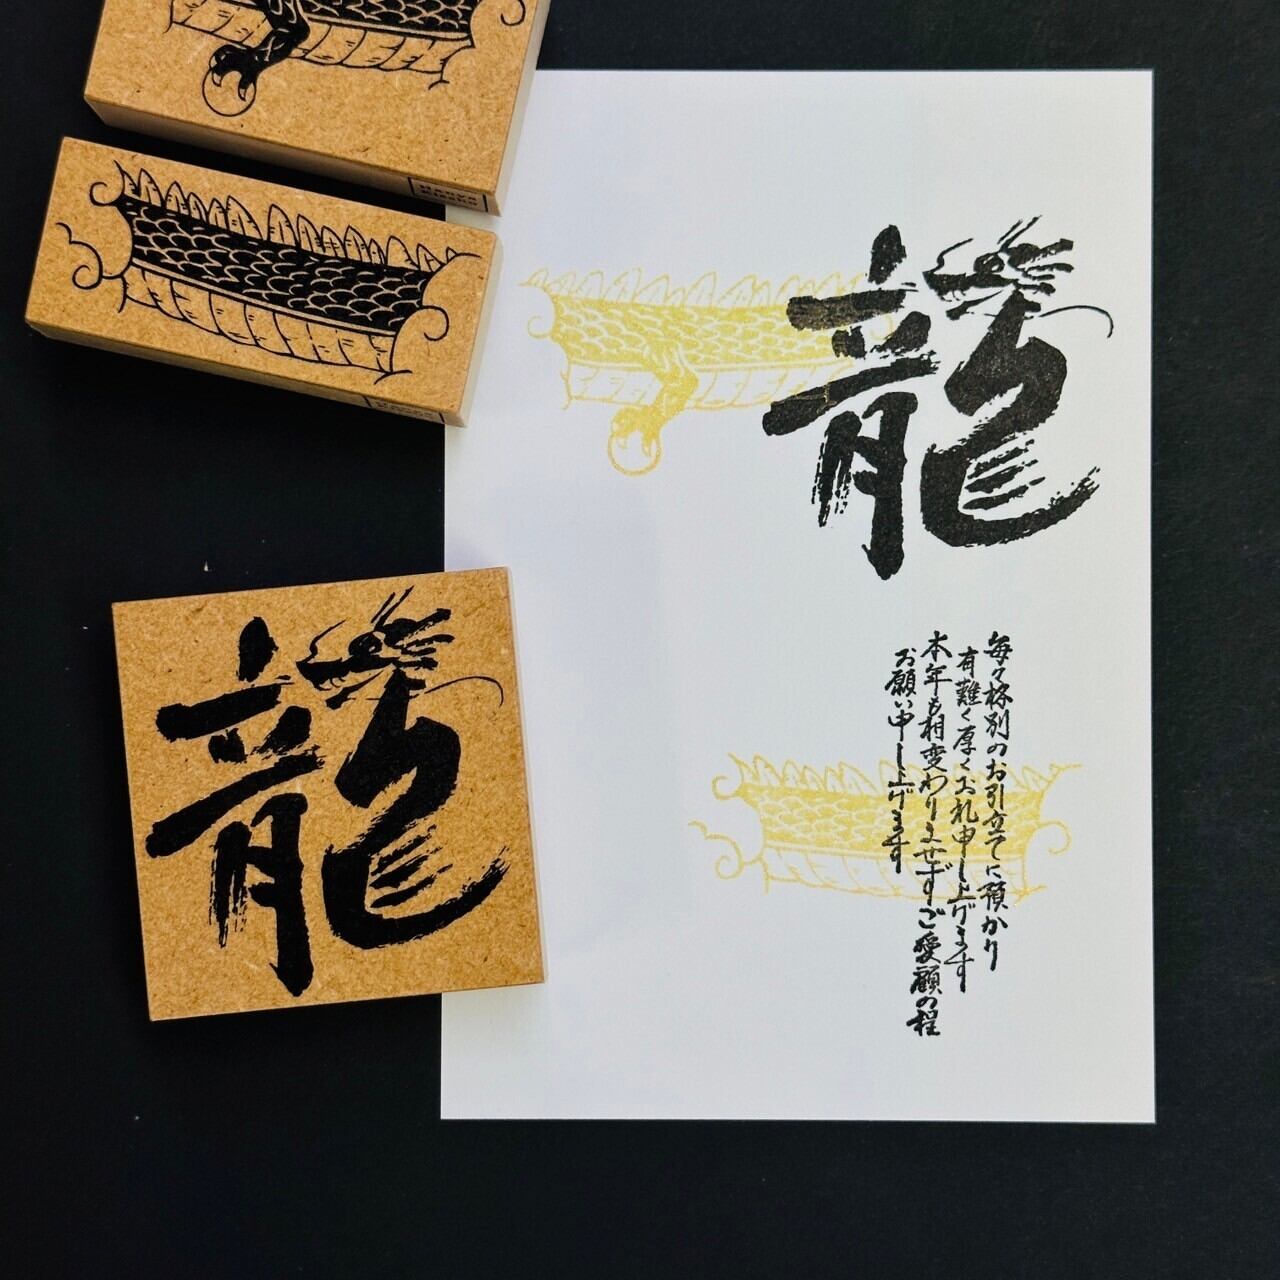 龍
毎々格別のお引立てに預かり
有難く厚くお礼申し上げます
本年も相変わりませずご愛顧の程
お願い申し上げます
龍